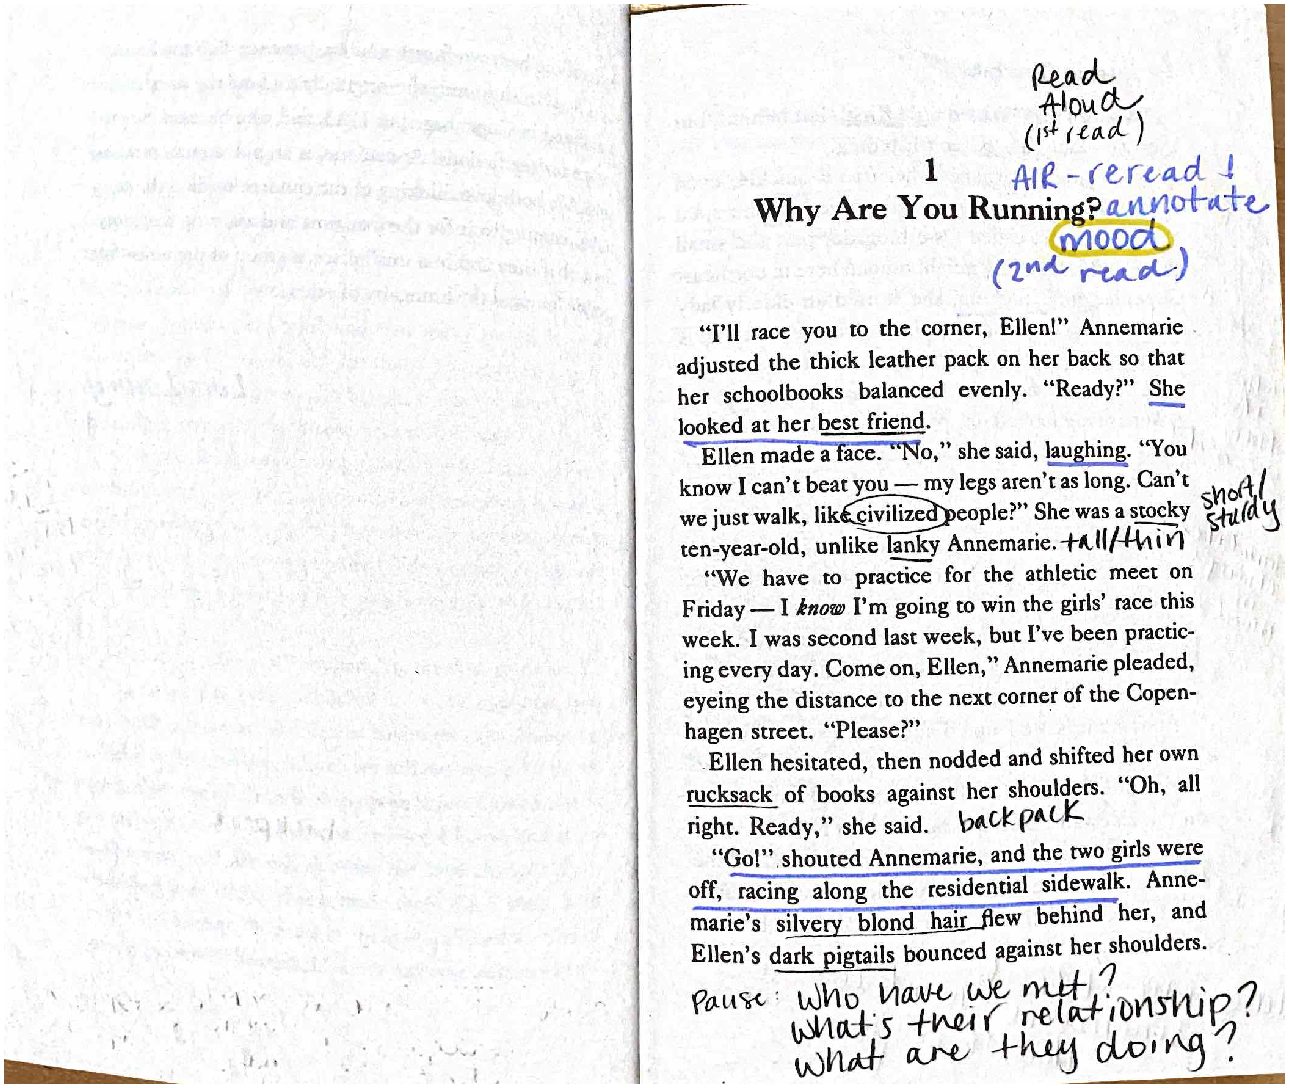 Read
Aloud
(1st read)
1
AIR - reread +
Why Are You Running? annotate
mood
(2nd read)
"I'll race you to the corner, Ellen!" Annemarie
adjusted the thick leather pack on her back so that
her schoolbooks balanced evenly. "Ready?" She
looked at her best friend.
Ellen made a face. "No," she said, laughing. "You
know I can't beat you — my legs aren't as long. Can't
we just walk, like civilized people?" She was a stocky
short/
sturdy
ten-year-old, unlike lanky Annemarie. tall/thin
"We have to practice for the athletic meet on
Friday — I know I'm going to win the girls' race this
week. I was second last week, but I've been practic-
ing every day. Come on, Ellen," Annemarie pleaded,
eyeing the distance to the next corner of the Copen-
hagen street. "Please?"
Ellen hesitated, then nodded and shifted her own
rucksack of books against her shoulders. "Oh, all
right. Ready," she said. backpack
"Go!" shouted Annemarie, and the two girls were
off, racing along the residential sidewalk. Anne-
marie's silvery blond hair flew behind her, and
Ellen's dark pigtails bounced against her shoulders.
Pause: Who have we met?
What's their relationship?
What are they doing?